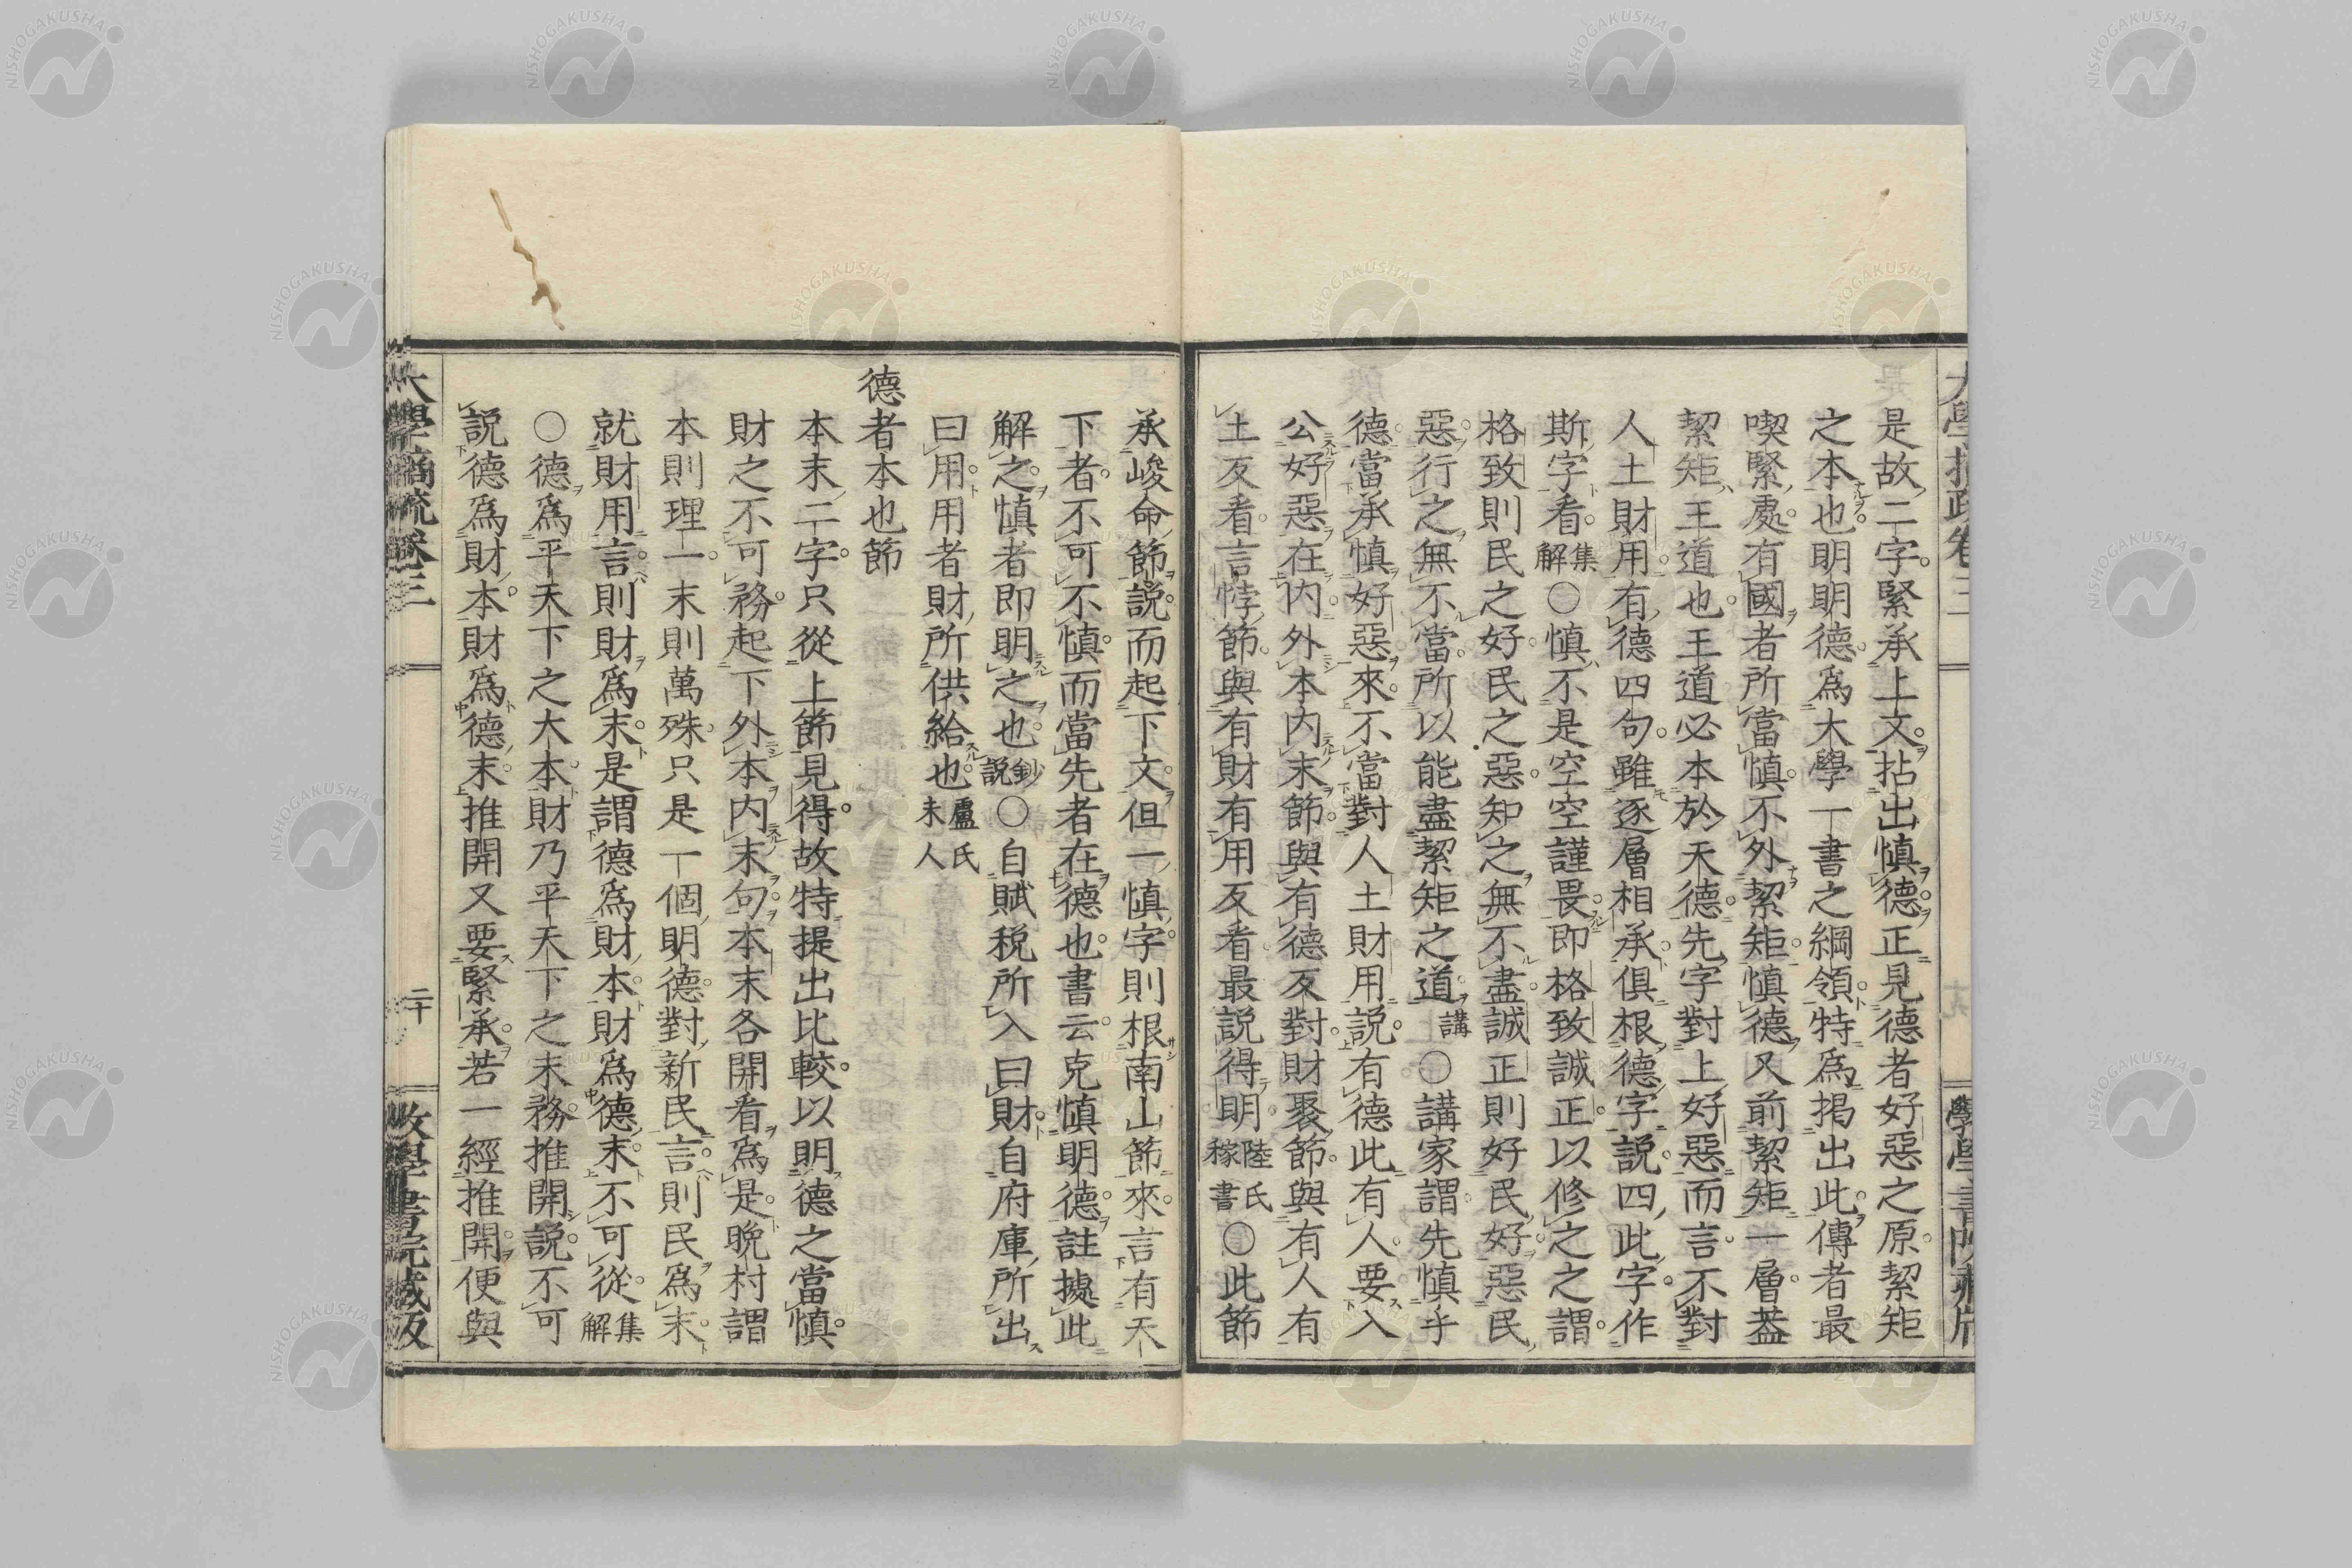 是故二字緊承上文拈出慎德正見德者好惡之原絜矩
之本也明明德爲大學一書之綱領特爲揭出此傳者最
喫緊處有國者所當慎不外絜矩慎德又前絜矩一層葢
絜矩王道也王道必本於天德先字對上好惡而言不對
人土財用有德四句雖逐層相承俱根德字説四此字作
斯字看集解○慎不是空空謹畏即格致誠正以修之之謂
格致則民之好民之惡知之無不盡誠正則好民好惡民
惡行之無不當所以能盡絜矩之道講○講家謂先慎乎
德當承慎好惡來不當對人土財用説有德此有人要入
公好惡在内外本内末節與有德反對財聚節與有人有
土反看言悖節與有財有用反看最説得明陸氏稼書○此節
承峻命節説而起下文但一慎字則根南山節來言有天
下者不可不慎而當先者在德也書云克慎明德註據此
解之慎者即明之也鈔説○自賦税所入曰財自府庫所出
曰用用者財所供給也盧氏未人
德者本也節
本末二字只從上節見得故特提出比較以明德之當慎
財之不可務起下外本内末句本末各開看爲是晩村謂
本則理一末則萬殊只是一個明德對新民言則民爲末
就財用言則財爲末是謂德爲財本財爲德末不可從集解
○德爲平天下之大本財乃平天下之末務推開説不可
説德爲財本財爲德末推開又要緊承若一經推開便與
大學摘疏卷三
二十
NISHOGAKUSHA